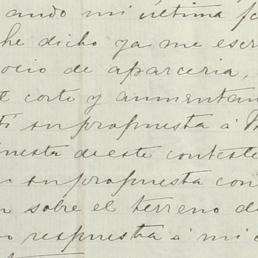 ando mi última fe
he dicho ya me escr
ocio de aparceria,
el corto y aumentan
su propuesta á
uesta de este conteste
su propuesta con
n sobre el terreno de
o respuesta á mi c